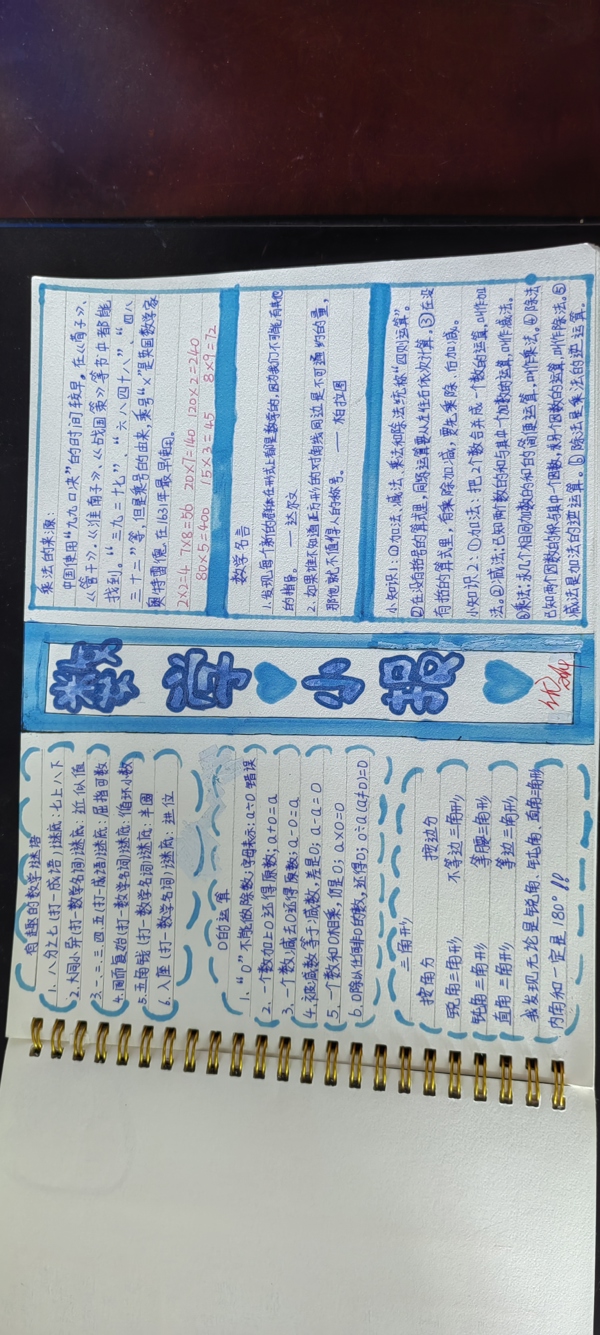 有趣的数学谜语
1. 八分之七(打一成语)谜底:七上八下
2. 大同小异(打一数学名词)谜底:近似值
3. 一、二、三、四、五(打成语)谜底:屈指可数
4. 周而复始(打一数学名词)谜底:循环小数
5. 五角钱(打一数学名词)谜底:半圆
6. 入座(打一数学名词)谜底:进位
0的运算
1. “0”不能做除数;字母表示:a÷0 错误
2. 一个数加上0还得原数;a+0=a
3. 一个数减去0还得原数;a-0=a
4. 被减数等于减数,差是0;a-a=0
5. 一个数和0相乘,仍是0;a×0=0
6. 0除以任何非0的数,还得0;0÷a(a≠0)=0
三角形
按角分 按边分
锐角三角形 不等边三角形
钝角三角形 等腰三角形
直角三角形 等边三角形
我发现无论是锐角、钝角、直角三角形
内角和一定是180°!!
数学小报
优
乘法的来源:
中国使用“九九口决”的时间较早。在《荀子》、
《管子》、《淮南子》、《战国策》等书中都能
找到。“三九二十七”、“六八四十八”、“四八
三十二”等,但是乘号的由来,乘号“×”是英国数学家
奥特雷德,在1631年最早使用。
2×2=4 7×8=56 20×7=140 120×2=240
80×5=400 15×3=45 8×9=72
数学名言
1. 发现每个新的群体在形式上都是数学的,因为我们不可能有其他
的指导。 — 达尔文
2. 如果谁不知道正方形的对角线同边是不可通约的量,
那他就不值得人的称号。 — 柏拉图
小知识1:①加法、减法、乘法和除法统称“四则运算”。
②在没有括号的算式里,同级运算要从左往右依次计算。③在没
有括的算式里,有乘除加减,要先乘除,后加减。
小知识2:①加法:把2个数合并成一个数的运算,叫作加
法。②减法:已知两个数的和与其中一个加数的运算,叫作减法。
③乘法:求几个相同加数的和的简便运算,叫作乘法。④除法
已知两个因数的积与其中一个因数,求另个因数的运算,叫作除法。⑤
减法是加法的逆运算。⑥除法是乘法的逆运算。